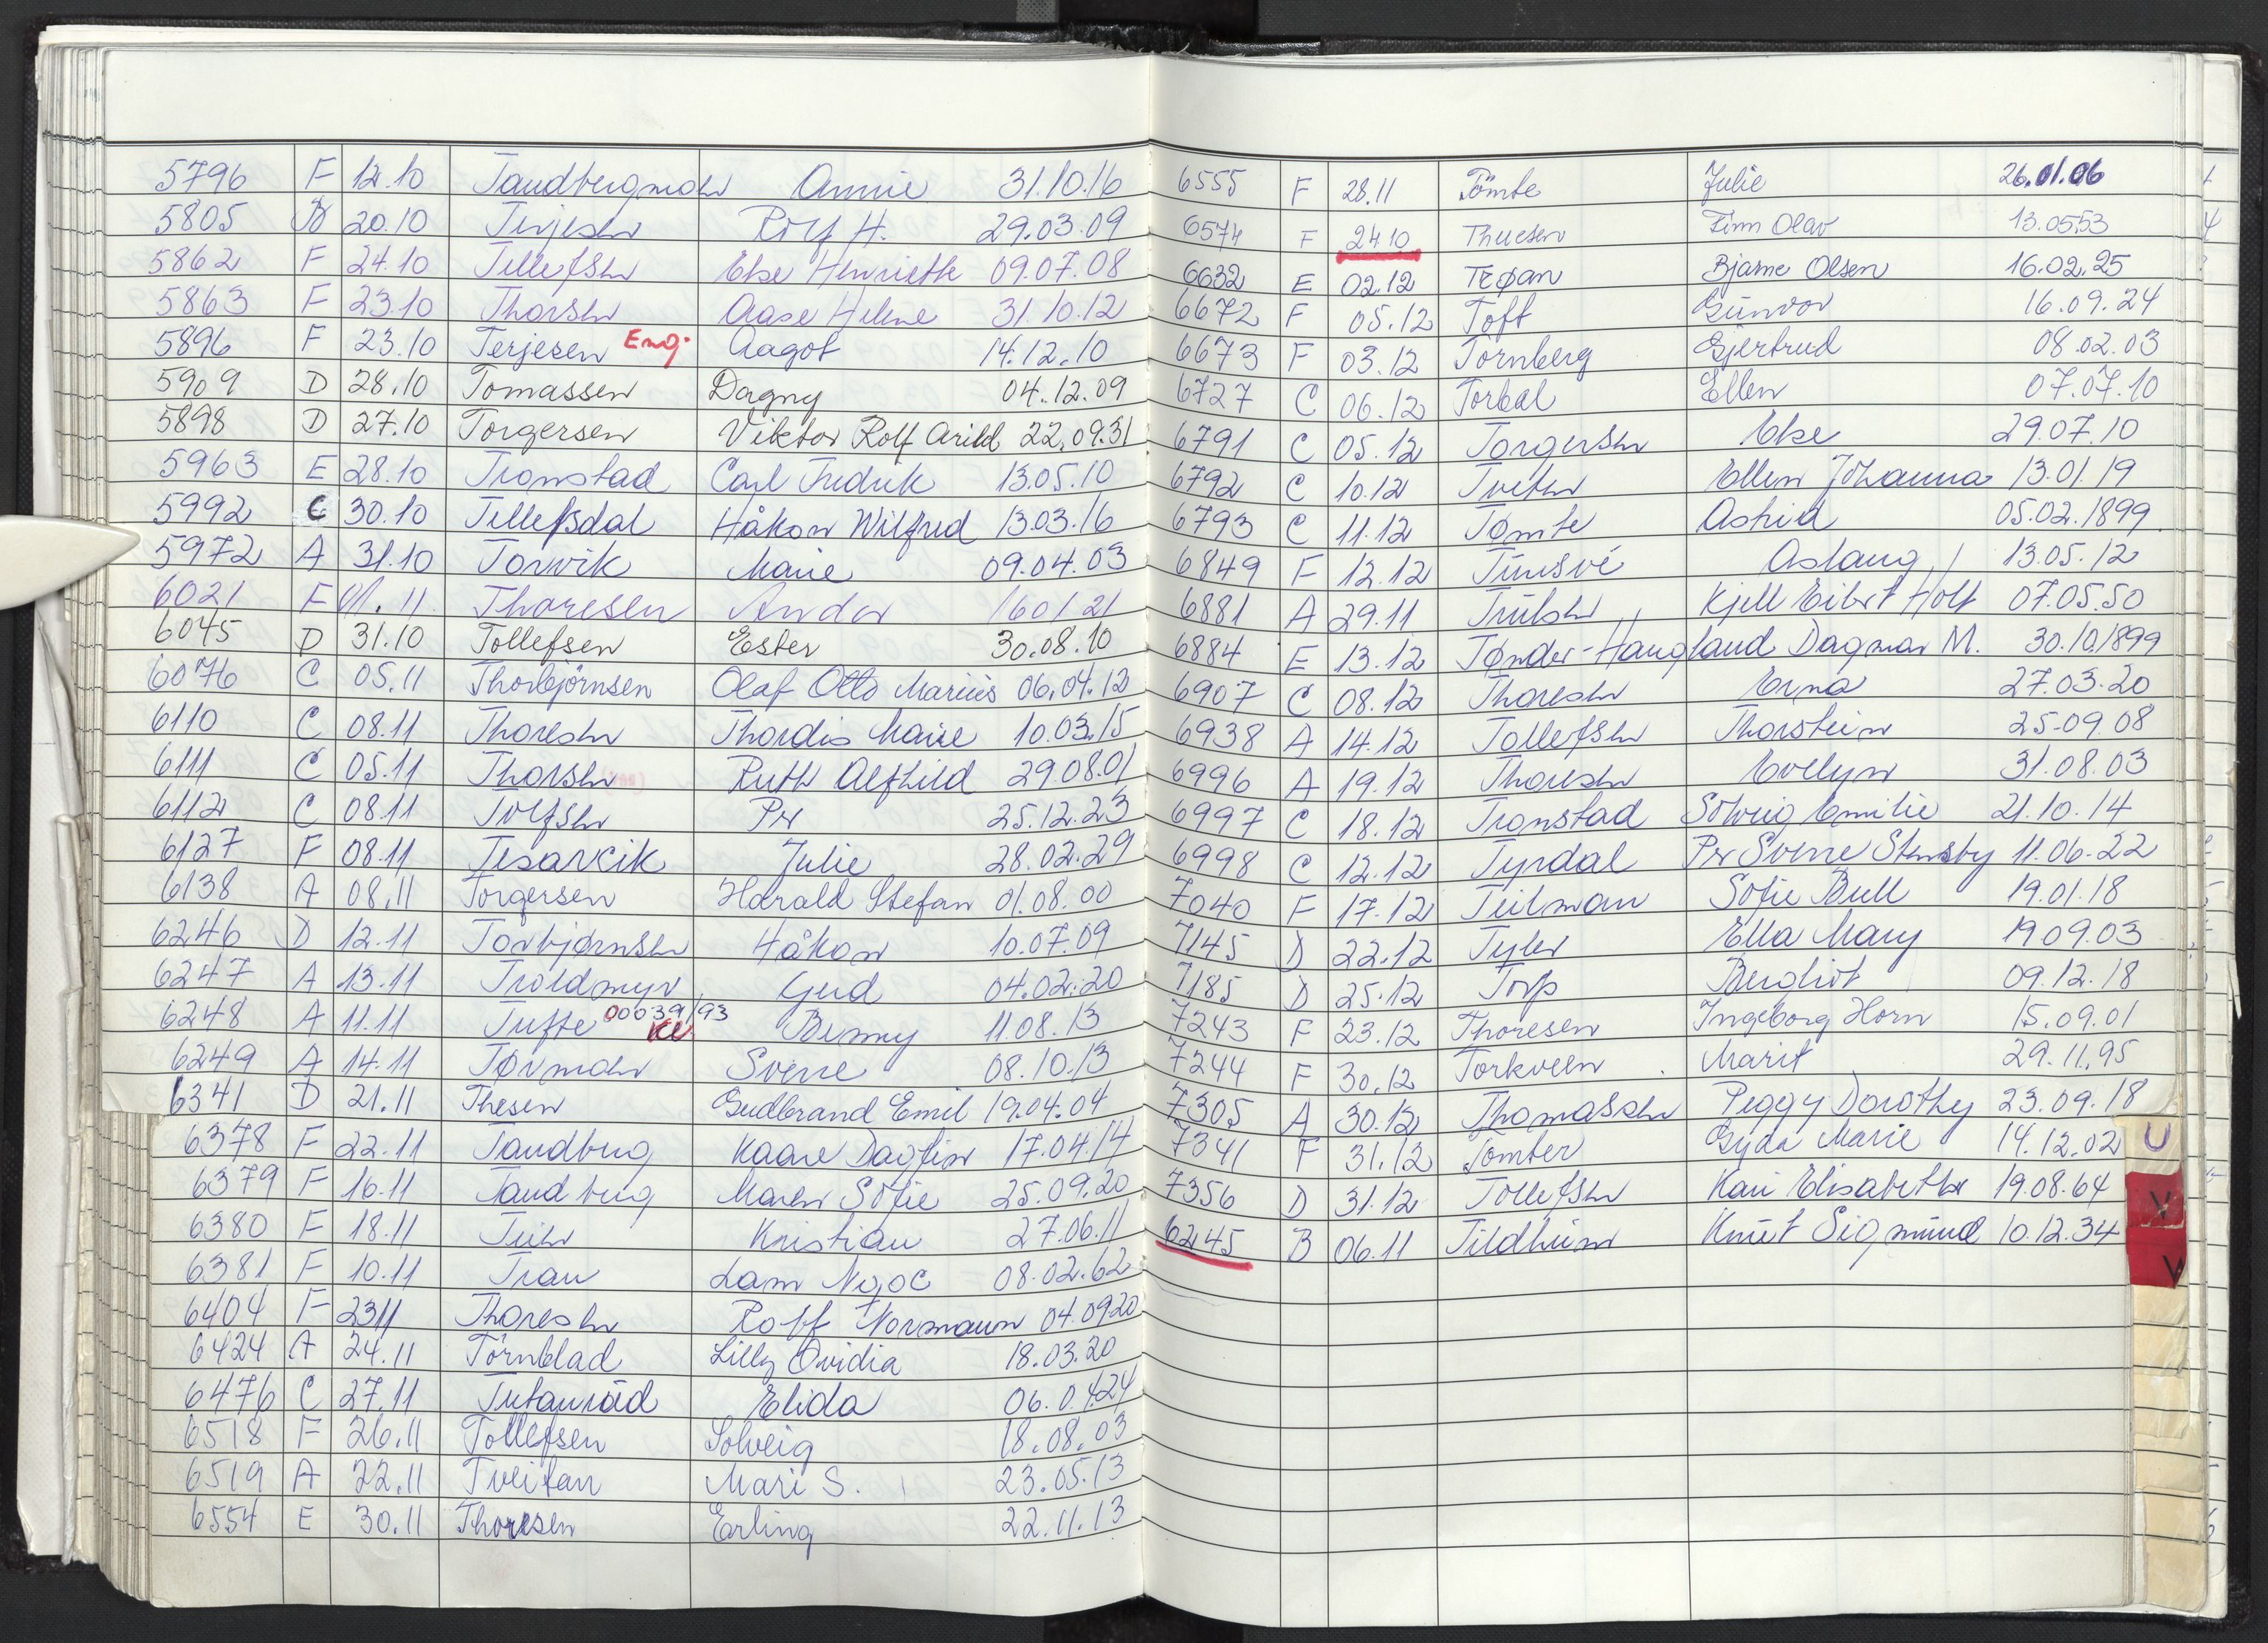 5796 F 12.10 Tandbergmoen Annie 31.10.16
5805 B 20.10 Terjesen Rolf H. 29.03.09
5862 F 24.10 Tellefsen Else Henriette 09.07.08
5863 F 23.10 Thorsen Aase Helene 31.10.12
5896 F 23.10 Terjesen Eng. Aagot 14.12.10
5909 D 28.10 Tomassen Dagny 04.12.09
5898 D 27.10 Torgersen Viktor Rolf Arild 22.09.31
5963 E 28.10 Tronstad Carl Fredrik 13.05.10
5992 C 30.10 Tellefsdal Håkon Wilfred 13.03.16
5972 A 31.10 Torvik Marie 09.04.03
6021 F 01.11 Thoresen Andor 160121
6045 D 31.10 Tollefsen Ester 30.08.10
6076 C 05.11 Thorbjörnsen Olaf Otto Marius 06.04.12
6110 C 08.11 Thoresen Thordis Marie 10.03.15
6111 C 05.11 Thorsen Ruth Alfhild 29.08.01
6112 C 08.11 Tolfsen Per 25.12.23
6127 F 08.11 Tesarcik Julie 28.02.29
6138 A 08.11 Torgersen Harald Stefan 01.08.00
6246 D 12.11 Torbjørnsen Håkon 10.07.09
6247 A 13.11 Troldmyr Gerd 04.02.20
6248 A 11.11 Tufte 00039/93 Benny 11.08.13
6249 A 14.11 Tørmoen Sverre 08.10.13
6341 D 21.11 Thesen Gudbrand Emil 19.04.04
6378 F 22.11 Tandberg Kaare Dagfin 17.04.14
6379 F 16.11 Tandberg Maren Sofie 25.09.20
6380 F 18.11 Teien Kristian 27.06.11
6381 F 10.11 Tran Lam Ngoc 08.02.62
6404 F 2311 Thoresen Rolf Normann 04.0920
6424 A 24.11 Törnblad Lilly Ovidia 18.03.20
6476 C 27.11 Elida 06.0424
6518 F 26.11 Tollefsen Solveig 18.08.03
6519 A 22.11 Tveitan Mari S. 23.05.13
6554 E 30.11 Thoresen Erling 22.11.13
6555 F 28.11 Tömte Julie 26.01.06
6574 F 24.10 Thuesen Finn Olav 13.0553
6632 E 02.12 Trøan Bjarne Olsen 16.02.25
6672 F 05.12 Toft Gunvor 16.09.24
6673 F 03.12 Tornberg Gjertrud 08.02.03
6727 C 06.12 Torbal Ellen 07.07.10
6791 C 05.12 Torgersen Else 29.07.10
6792 C 10.12 Tviten Ellen Johanna 13.01.19
6793 C 11.12 Tømte Astrid 05.02.1899
6849 F 12.12 Aslaug 13.05.12
6881 A 29.11 Trulsen Kjell Eibert Holt 07.05.50
6884 E 13.12 Tønder-Haugland Dagmar M. 30.10.1899
6907 C 08.12 Thoresen Erna 27.03.20
6938 A 14.12 Tollefsen Thorstein 25.09.08
6996 A 19.12 Thoresen Evelyn 31.08.03
6997 C 18.12 Tronstad Solveig Emilie 21.10.14
6998 C 12.12 Tyrdal Per Sverre Stensby 11.06.22
7040 F 17.12 Teilman Sofie Bull 19.01.18
7145 D 22.12 Tyler Ella Mary 19.09.03
7185 D 25.12 Torp Bergliot 09.12.18
7243 F 23.12 Thoresen Ingeborg Horn 15.09.01
7244 F 30.12 Torkveen Marit 29.11.95
7305 A 30.12 Thomassen Peggy Dorothy 23.09.18
7341 F 31.12 Tomter Gyda Marie 14.12.02
7356 D 31.12 Tollefsen Kari Elisabeth 19.08.64
6245 B 06.11 Tildheim Knut Sigmund 10.12.34
U
V
W